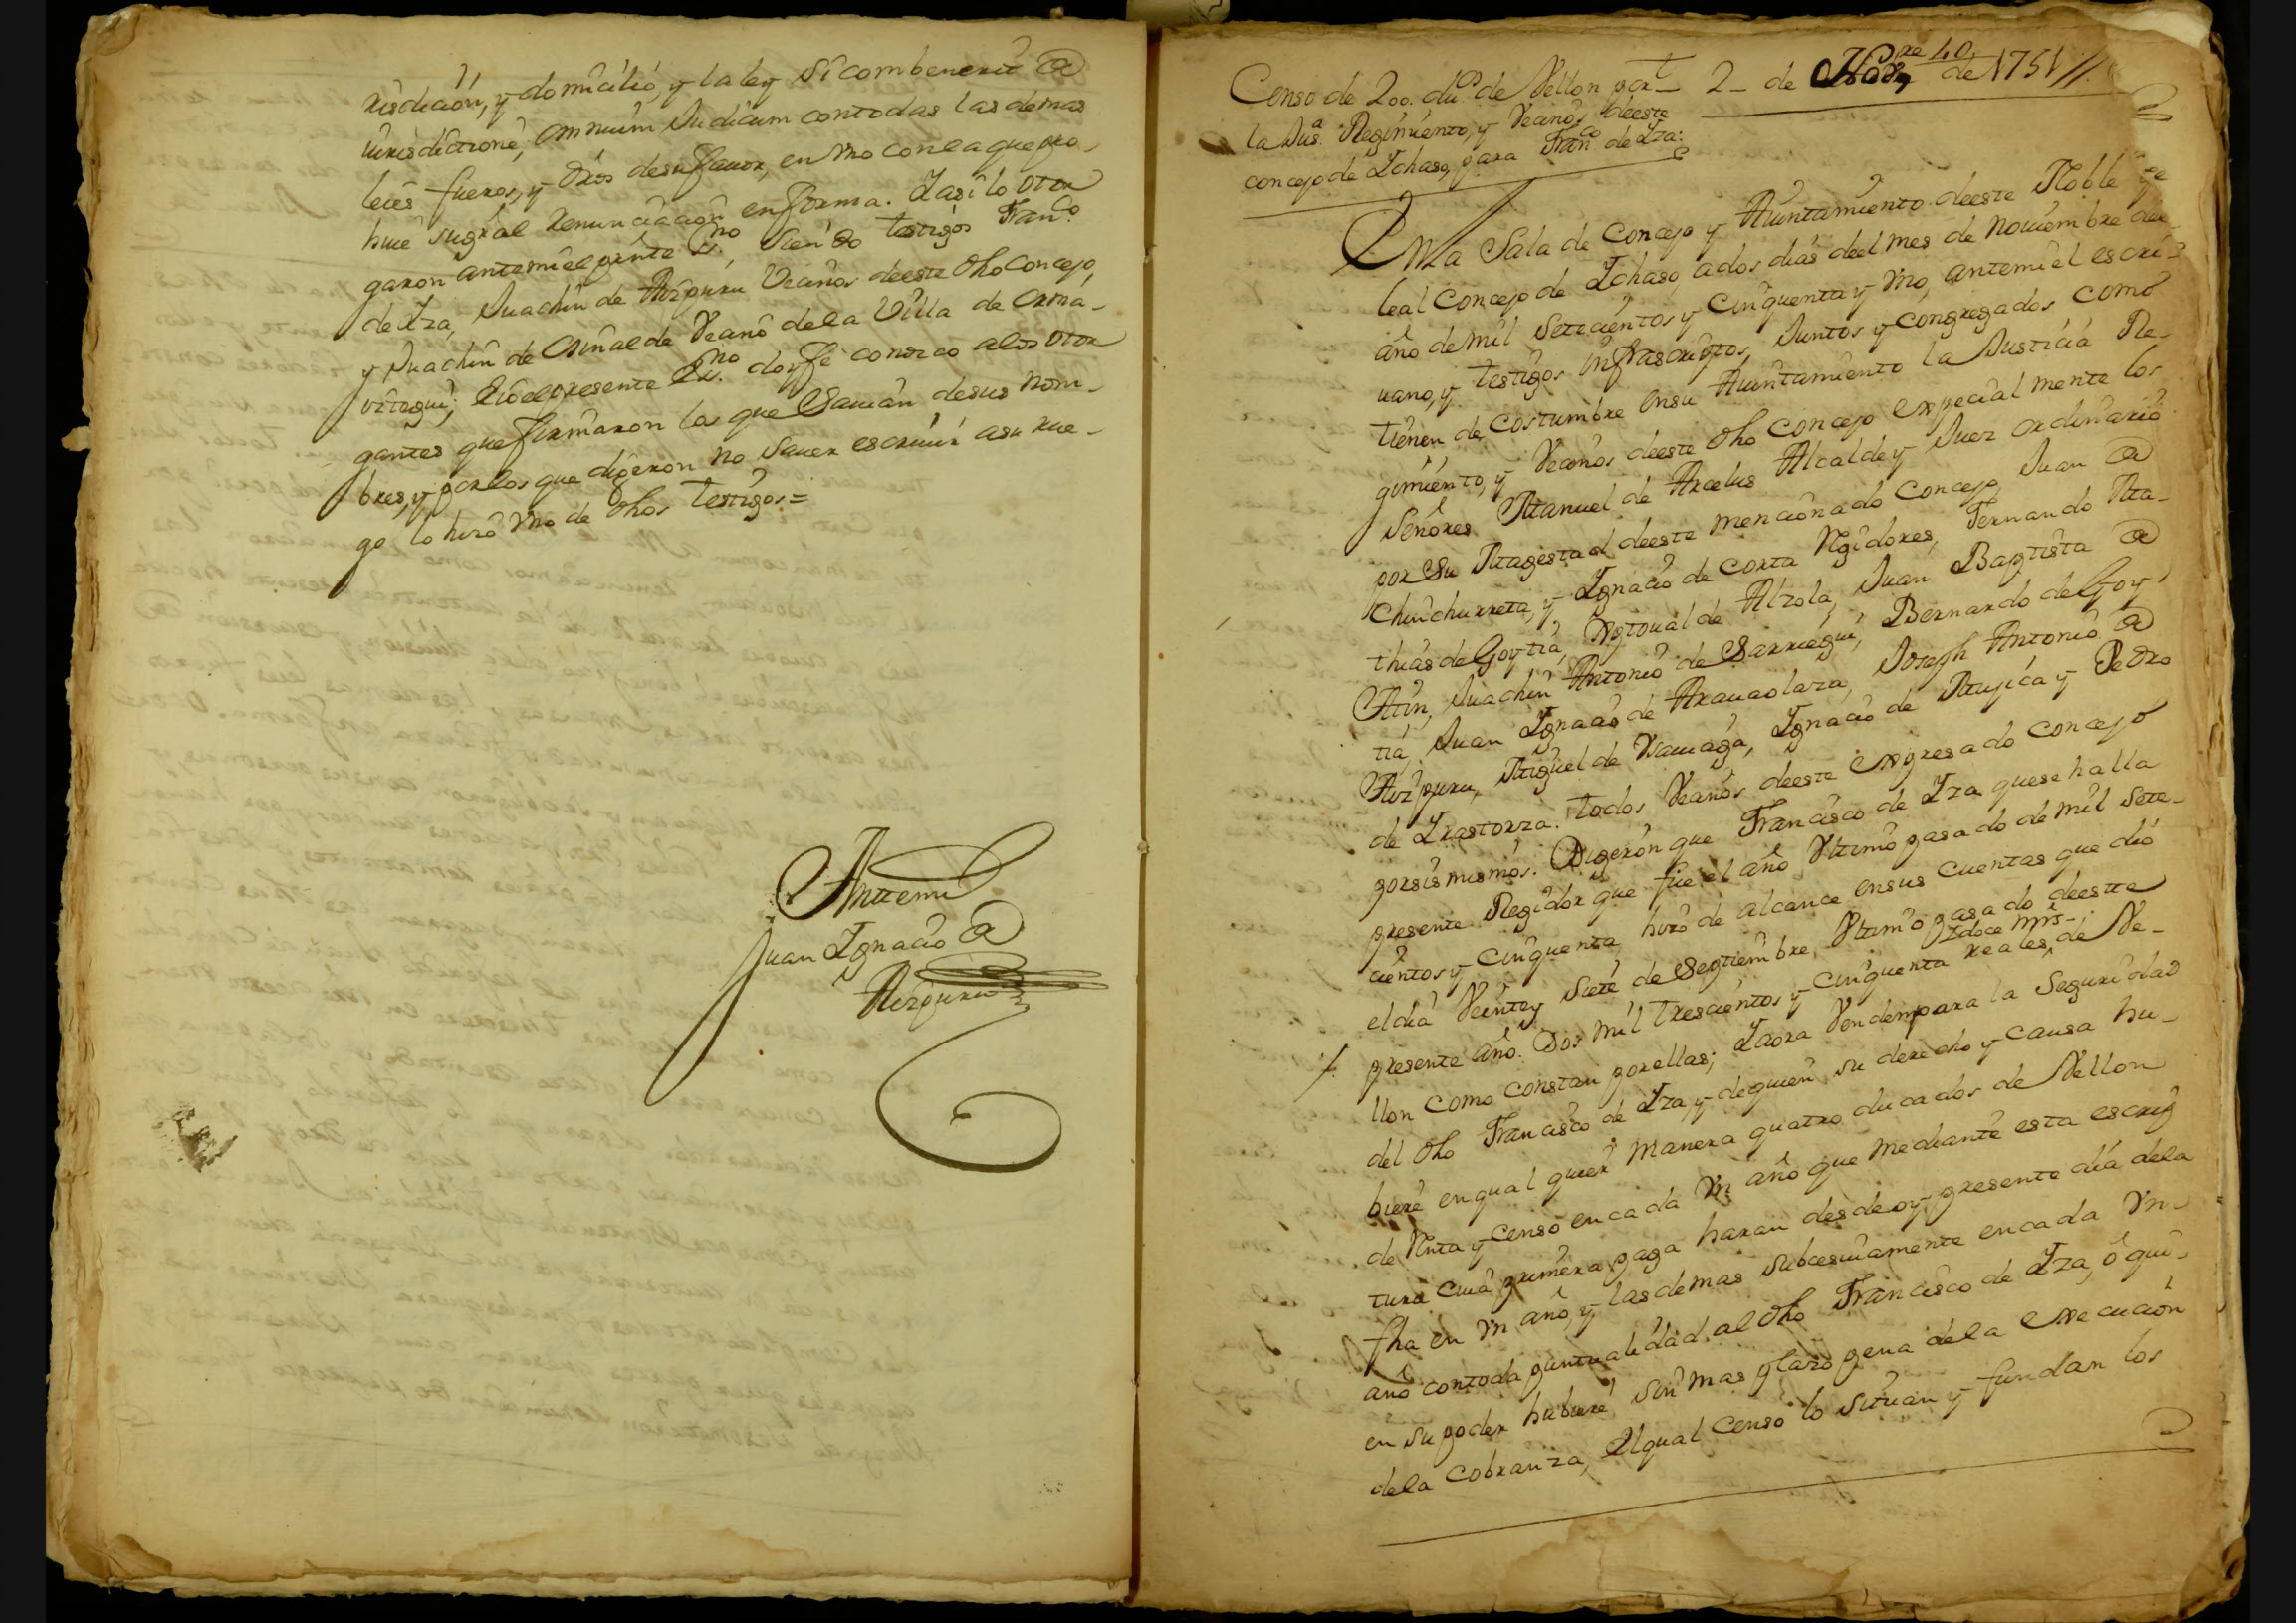 risdicion, y domicilio, y la ley Sicombenerit @
iurisdictione, omnium Judicum contodas las demas
leies fueros, y dros desu favor, en vno conla que pro-
hiue sugral Renunciacion enforma. Yasi lo otor
garon antemi el prnte Ssno. Siendo testigos Franco.
de Yza, Juachin de Aizpuru Vecinos deeste dho Concejo,
y Juachin de Osinalde Vecino dela Villa de Orma-
iztegui; Eio el presente Ssno. doyfe conozco alos otor
gantes que firmaron los que Sauian desus nom-
bres, y porlos que digeron no Sauer escriuir asu rue-
go lo hizo vno de dhos testigos =
Anttemi
Juan Ygnacio @
Aizpuru
Censo de 200. dus. de Vellon por
la Jusa. Regimiento, y Vecinos deeste
concejo de Ychaso, para Franco de Yza.
2- de Novre de 1751 //
40
En La Sala de Concejo y Aiuntamiento deeste Noble y
leal Concejo de Ychaso, ados dias deel mes de Nouiembre del
año de mil Setecientos y Cinquenta y vno, antemi el escri-
uano, y testigos infrascriptos, Juntos y congregados como
tienen de costumbre ensu Aiuntamiento la Justicia Re-
gimiento, y Vecinos deeste dho Concejo expecialmente los
Señores Manuel de Arcelus Alcalde y Juez ordinario
por Su Magestad deeste mencionado Concejo, Juan @
Chinchurreta, y Ygnacio de Corta Rgidores, Fernando Ma-
thias de Goytia, Xptoual de Alzola, Juan Baptista @
Atin, Juachin Antonio de Sarriegui, Bernardo de Goy
tia, Juan Ygnacio de Arauaolaza, Joseph Antonio @
Aizpuru, Miguel de Vsauiaga, Ygnacio de Mujica y Pedro
de Yrastorza. todos Vecinos deeste expresado Concejo
porsismismos. Digeron que Francisco de Yza quese halla
presente Regidor que fue el año Vltimo pasado de mil Sete-
cientos y Cinquenta, hizo de alcance ensus Cuentas que dio
el dia Veintey Siete de Septiembre, Vltimo pasado deeste
presente año. Dos mil trescientos y Cinquenta reales, de Ve-
ydoce mrs
llon como constan porellas; Yaora Venden para la Seguridad
del dho Francisco de Yza y dequien su derecho y causa hu-
biere enqual quier manera quatro ducados de Vellon
de Renta y Censo encada vn año que mediante esta escrip
tura cuia primera paga haran desdeoy presente dia dela
fha en vn año, y las demas Subcesiuamente encada vn
año contoda puntualidad al dho Francisco de Yza, ô qui-
en su poder hubiere, sin mas plazo pena dela execucion
dela Cobranza, Elqual Censo lo situan y fundan los